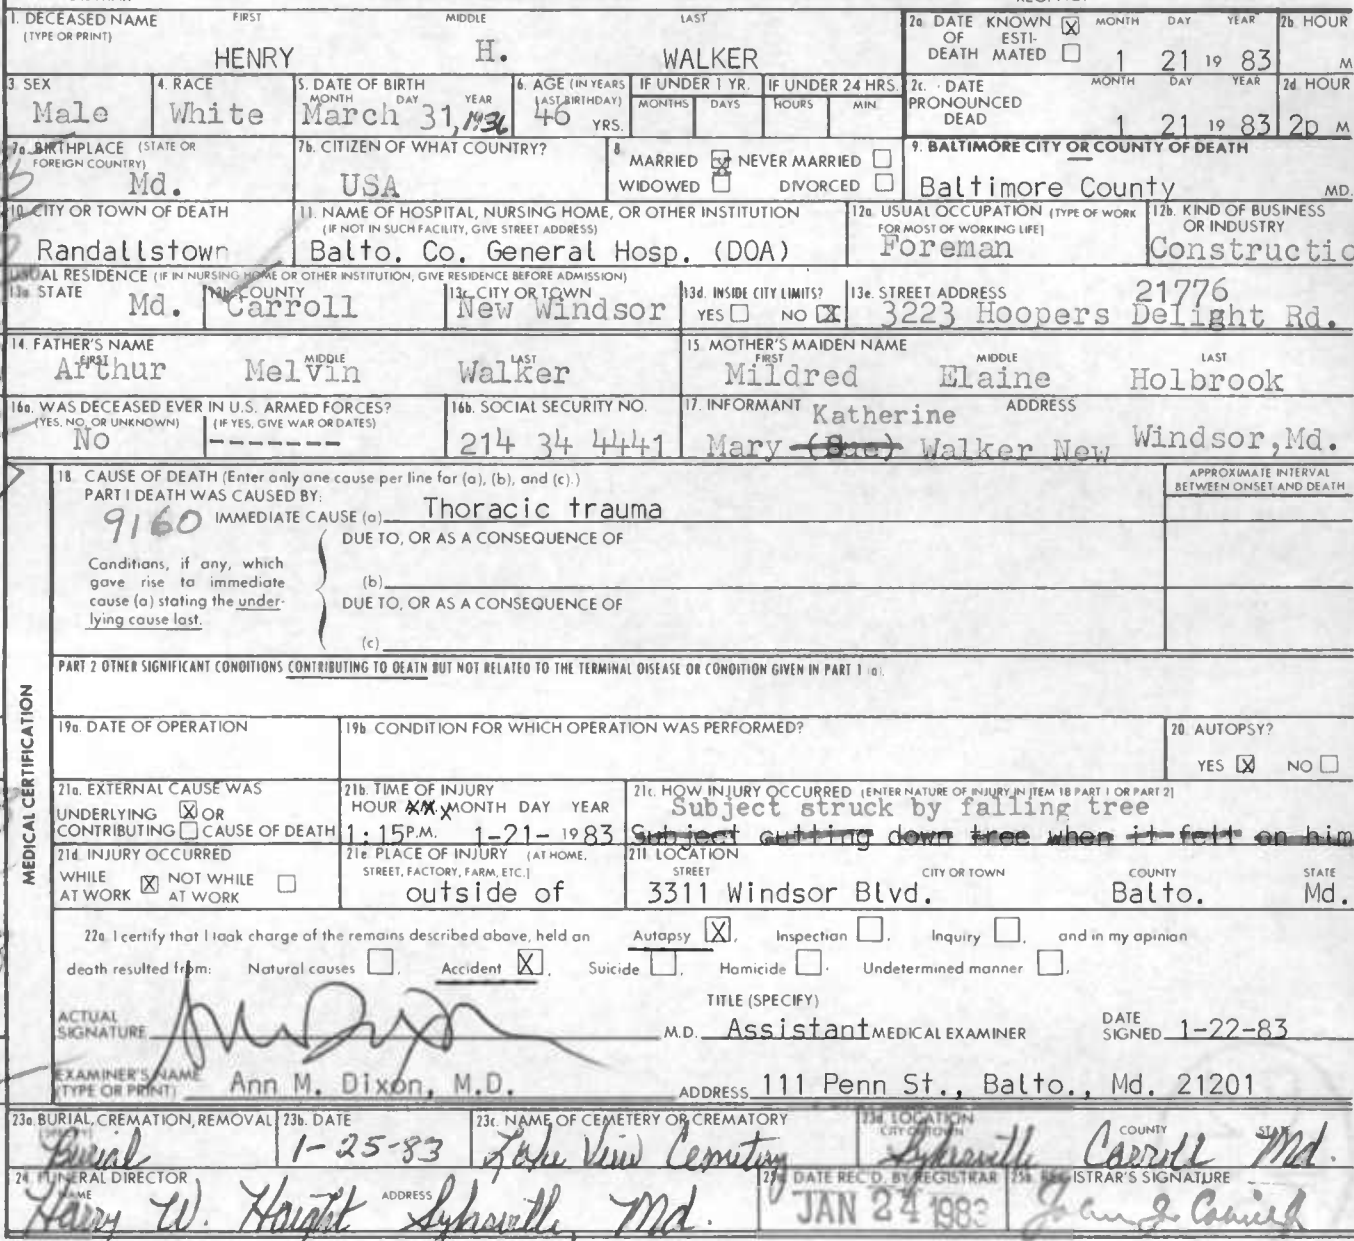 1. DECEASED NAME FIRST MIDDLE LAST
(TYPE OR PRINT)
HENRY H. WALKER
2a. DATE OF DEATH KNOWN [X] ESTI-MATED [ ] MONTH DAY YEAR
1 21 19 83
2b. HOUR
M
3. SEX
Male
4. RACE
White
5. DATE OF BIRTH
MONTH DAY YEAR
March 31, 1936
6. AGE (IN YEARS LAST BIRTHDAY)
46 YRS.
IF UNDER 1 YR.
MONTHS DAYS
IF UNDER 24 HRS.
HOURS MIN
2c. DATE PRONOUNCED DEAD MONTH DAY YEAR
1 21 19 83
2d HOUR
2p M
7a. BIRTHPLACE (STATE OR FOREIGN COUNTRY)
Md.
7b. CITIZEN OF WHAT COUNTRY?
USA
8. MARRIED [X] NEVER MARRIED [ ]
WIDOWED [ ] DIVORCED [ ]
9. BALTIMORE CITY OR COUNTY OF DEATH
Baltimore County MD.
10. CITY OR TOWN OF DEATH
Randallstown
11. NAME OF HOSPITAL, NURSING HOME, OR OTHER INSTITUTION
(IF NOT IN SUCH FACILITY, GIVE STREET ADDRESS)
Balto. Co. General Hosp. (DOA)
12a. USUAL OCCUPATION (TYPE OF WORK FOR MOST OF WORKING LIFE)
Foreman
12b. KIND OF BUSINESS OR INDUSTRY
Constructio
USUAL RESIDENCE (IF IN NURSING HOME OR OTHER INSTITUTION, GIVE RESIDENCE BEFORE ADMISSION)
13a. STATE
Md.
13b. COUNTY
Carroll
13c. CITY OR TOWN
New Windsor
13d. INSIDE CITY LIMITS?
YES [ ] NO [X]
13e. STREET ADDRESS 21776
3223 Hoopers Delight Rd.
14. FATHER'S NAME
FIRST MIDDLE LAST
Arthur Melvin Walker
15. MOTHER'S MAIDEN NAME
FIRST MIDDLE LAST
Mildred Elaine Holbrook
16a. WAS DECEASED EVER IN U.S. ARMED FORCES?
(YES, NO, OR UNKNOWN) (IF YES, GIVE WAR OR DATES)
No -------
16b. SOCIAL SECURITY NO.
214 34 4441
17. INFORMANT ADDRESS
Katherine
Mary (Sue) Walker New Windsor, Md.
18. CAUSE OF DEATH (Enter only one cause per line for (a), (b), and (c).)
PART I DEATH WAS CAUSED BY:
APPROXIMATE INTERVAL BETWEEN ONSET AND DEATH
9160 IMMEDIATE CAUSE (a) Thoracic trauma
DUE TO, OR AS A CONSEQUENCE OF
Conditions, if any, which gave rise to immediate cause (a) stating the under-lying cause last.
(b)
DUE TO, OR AS A CONSEQUENCE OF
(c)
PART 2 OTHER SIGNIFICANT CONDITIONS CONTRIBUTING TO DEATH BUT NOT RELATED TO THE TERMINAL DISEASE OR CONDITION GIVEN IN PART 1 (a).
MEDICAL CERTIFICATION
19a. DATE OF OPERATION
19b. CONDITION FOR WHICH OPERATION WAS PERFORMED?
20. AUTOPSY?
YES [X] NO [ ]
21a. EXTERNAL CAUSE WAS
UNDERLYING [X] OR
CONTRIBUTING [ ] CAUSE OF DEATH
21b. TIME OF INJURY
HOUR MONTH DAY YEAR
1:15 P.M. 1-21- 19 83
21c. HOW INJURY OCCURRED (ENTER NATURE OF INJURY IN ITEM 18 PART 1 OR PART 2)
Subject struck by falling tree
Subject cutting down tree when it fell on him
21d. INJURY OCCURRED
WHILE AT WORK [X] NOT WHILE AT WORK [ ]
21e. PLACE OF INJURY (AT HOME, STREET, FACTORY, FARM, ETC.)
outside of
21f. LOCATION
STREET CITY OR TOWN COUNTY STATE
3311 Windsor Blvd. Balto. Md.
22a. I certify that I took charge of the remains described above, held an Autopsy [X], Inspection [ ], Inquiry [ ], and in my opinion
death resulted from: Natural causes [ ], Accident [X], Suicide [ ], Homicide [ ], Undetermined manner [ ].
TITLE (SPECIFY)
ACTUAL SIGNATURE Ann M Dixon M.D. Assistant MEDICAL EXAMINER DATE SIGNED 1-22-83
EXAMINER'S NAME (TYPE OR PRINT) Ann M. Dixon, M.D. ADDRESS 111 Penn St., Balto., Md. 21201
23a. BURIAL, CREMATION, REMOVAL
Burial
23b. DATE
1-25-83
23c. NAME OF CEMETERY OR CREMATORY
Lake View Cemetery
23d. LOCATION
CITY OR TOWN COUNTY STATE
Sykesville Carroll Md.
24. FUNERAL DIRECTOR
NAME ADDRESS
Harry W. Haight Sykesville, Md.
25a. DATE REC'D. BY REGISTRAR
JAN 24 1983
25b. REGISTRAR'S SIGNATURE